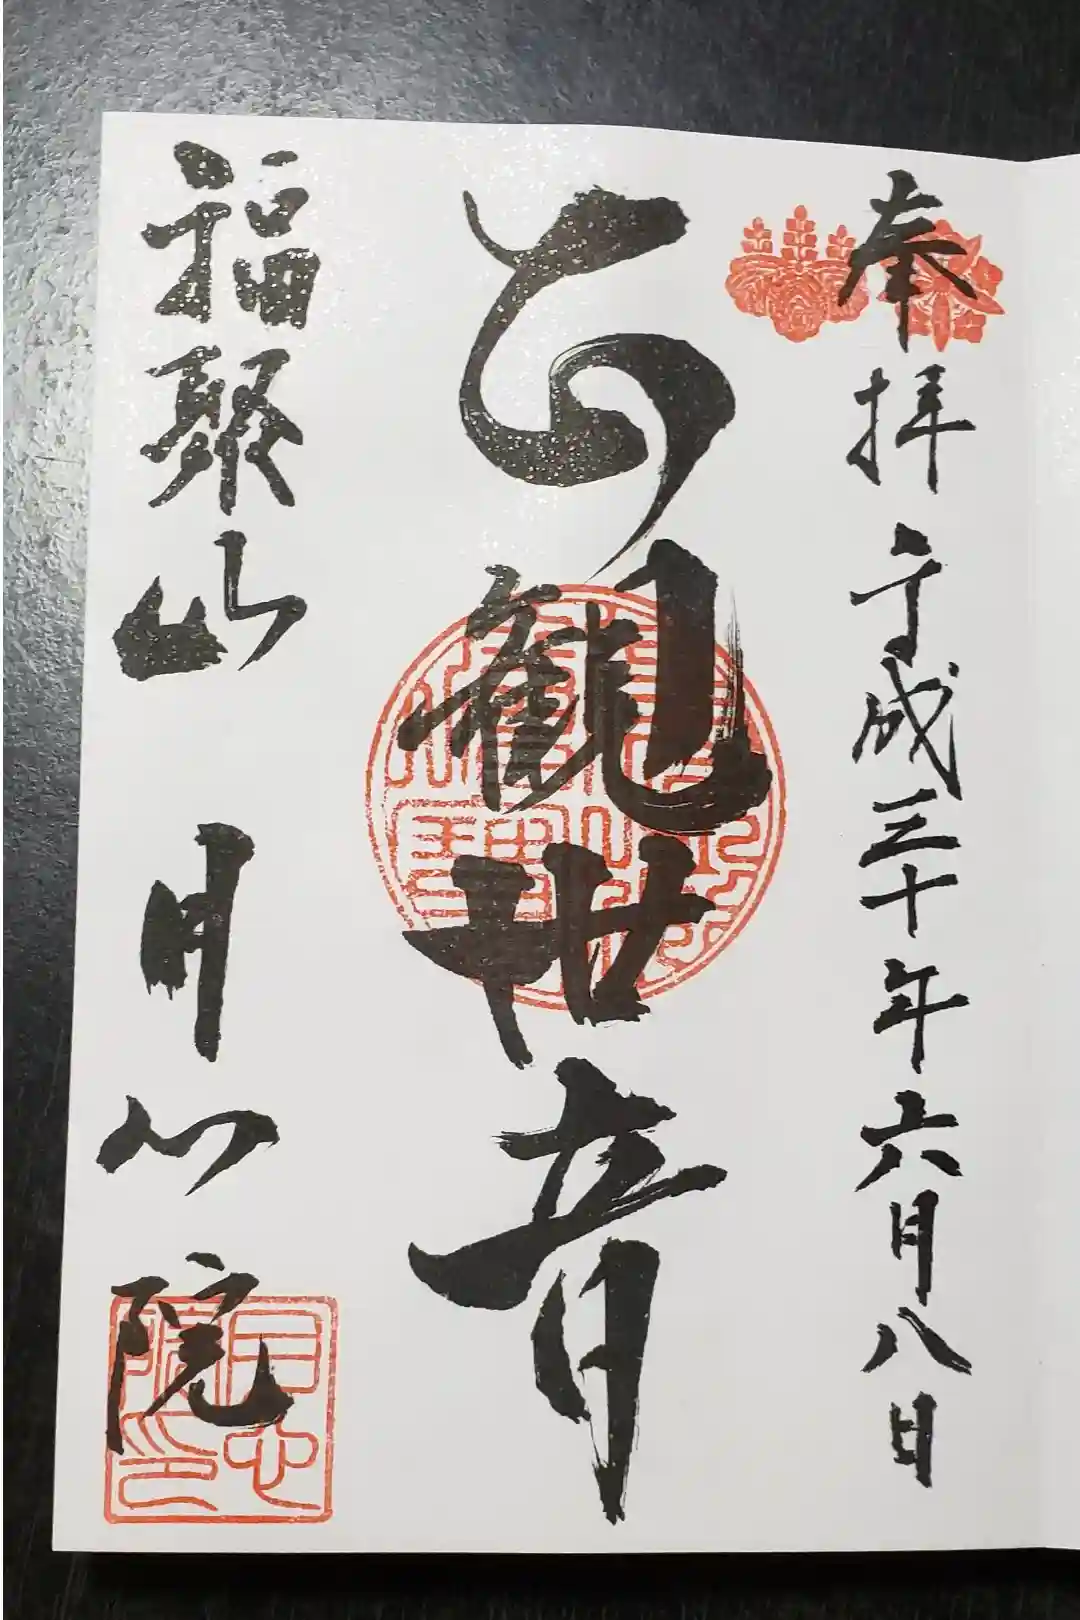 奉拝 平成三十年六月八日
観世音
福聚山 月心院